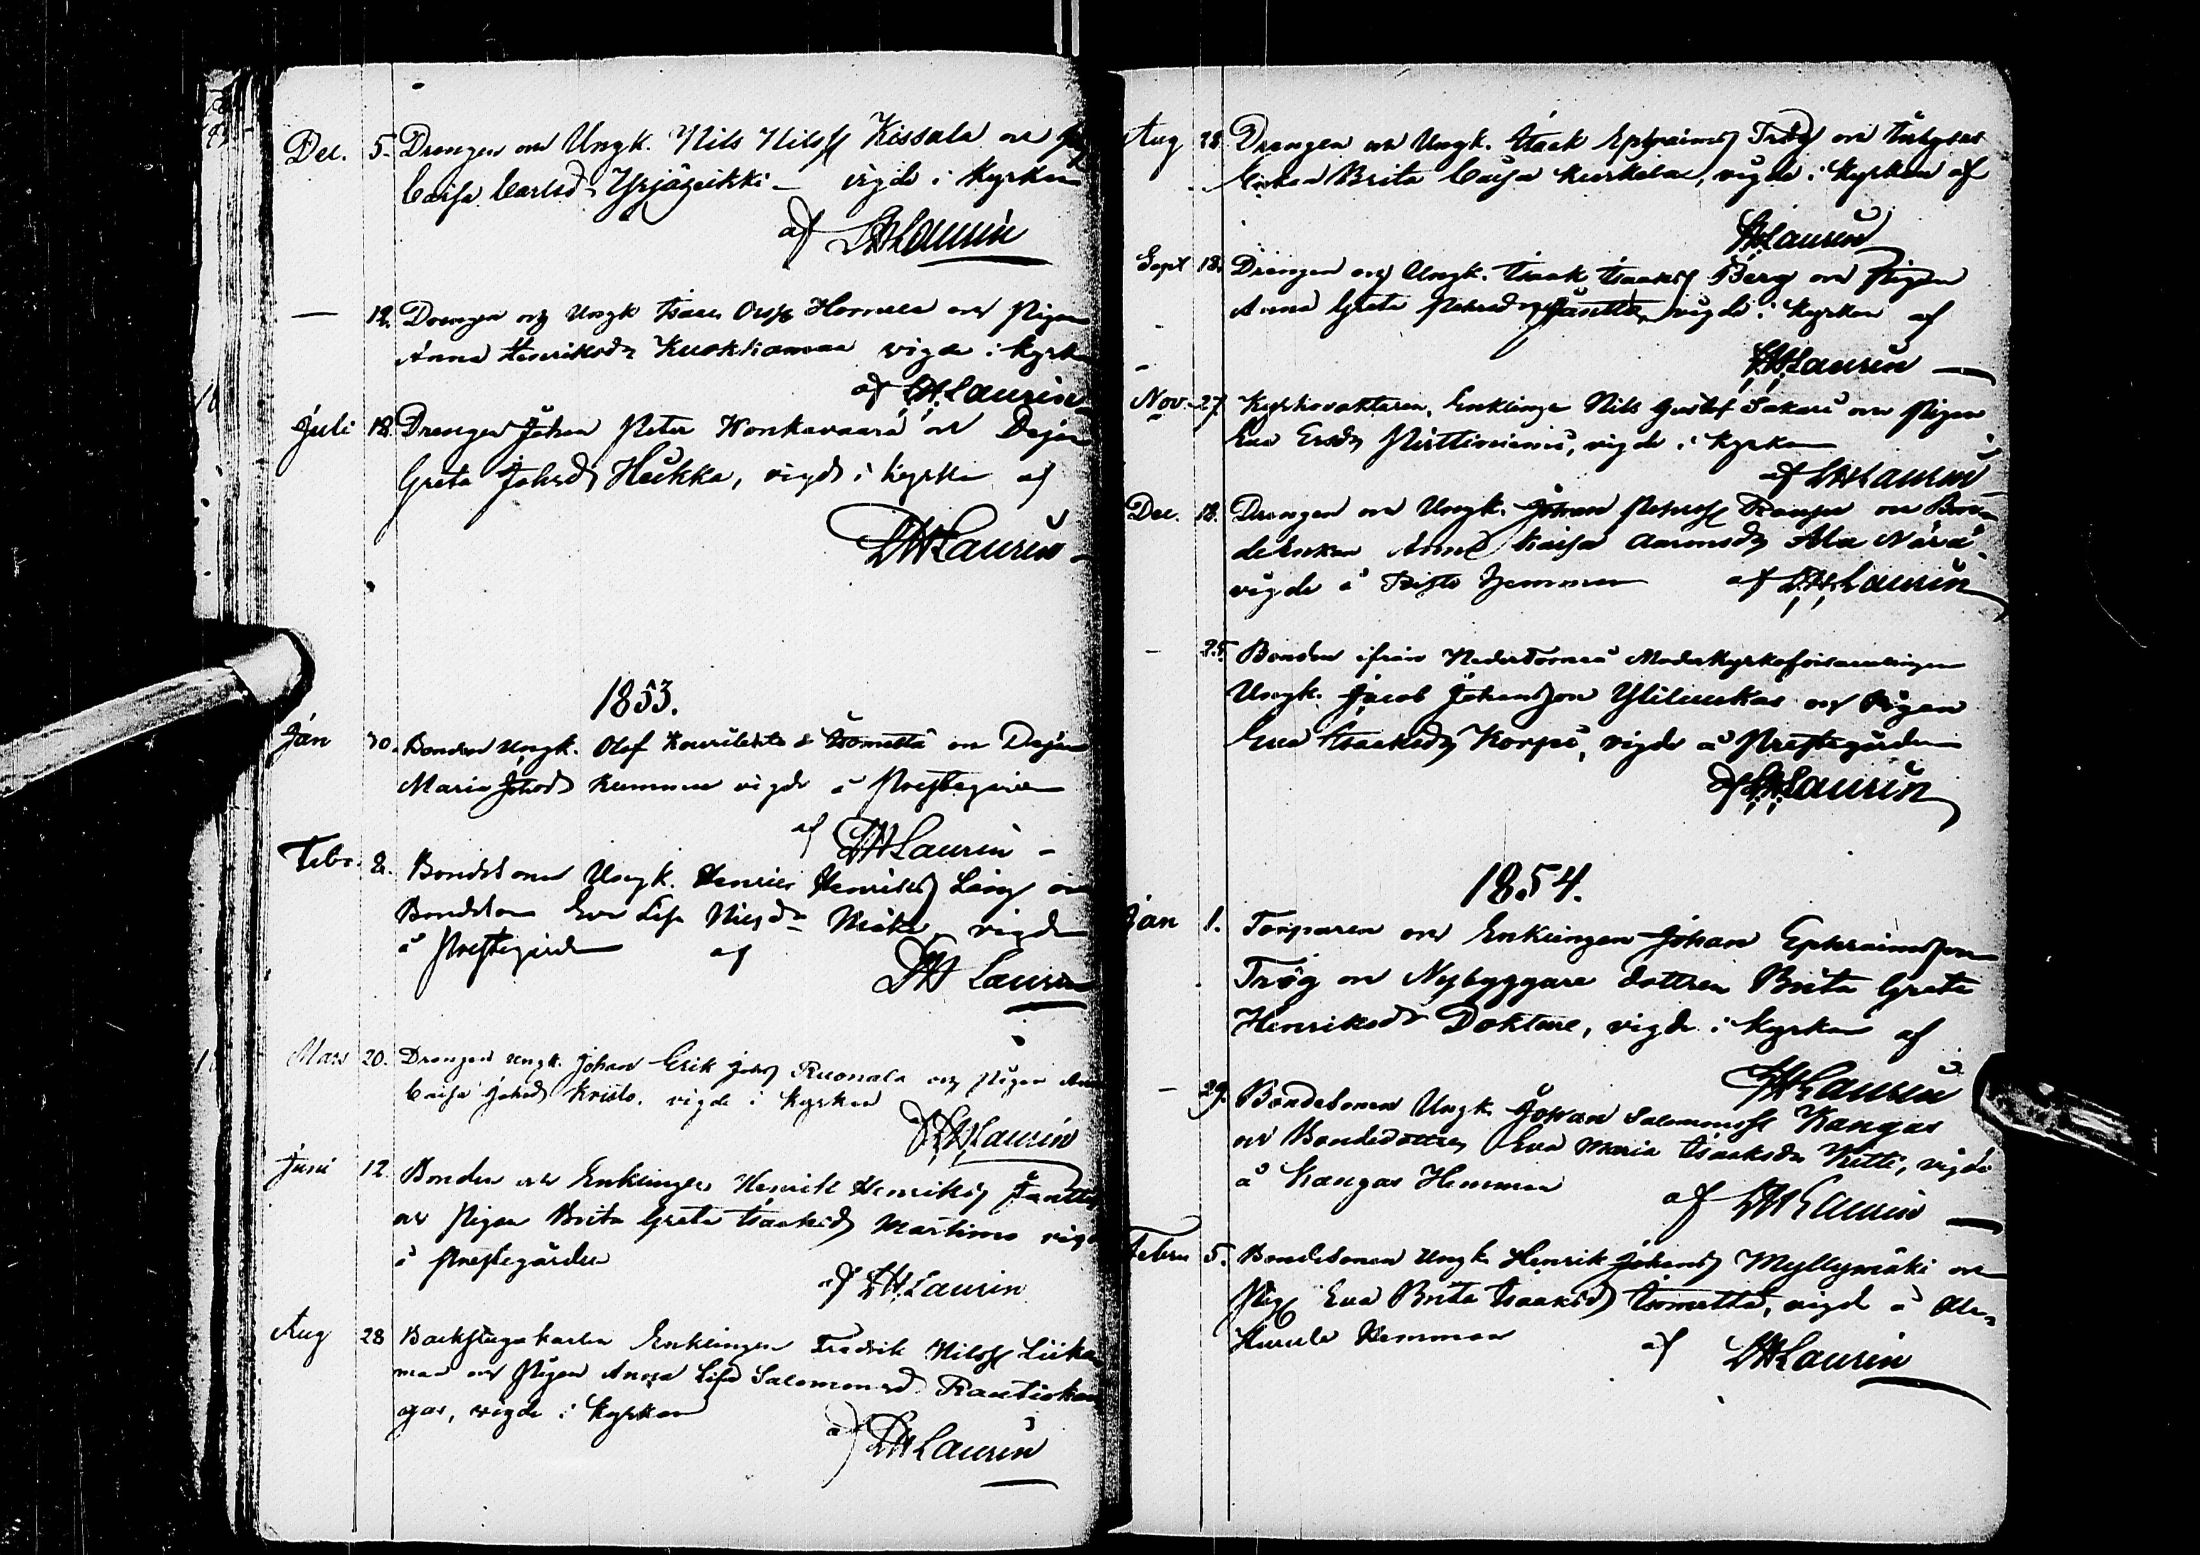 Dec. 5. Drengen och Ungk. Nils Nilss Kissala och
Caisa Carlsd Yrjäheikki vigde i Kyrkan
af Laurin
— 12. Drengen och Ungk Isaac Ersss och Pigan
Anna Henriksdr Kuokkamaa vigde i Kyrkan
af Laurin
Juli 18. Drengen Johan Peter Honkavaara och Dejan
Greta Johsdr Heikka, vigde i kyrkan af
Laurin
1853.
Jan 30. Bonden Ungk. Olof å Isometsä och Dejan
Maria Johsd vigde å Prestegården
af Laurin
Febr. 2. Bondeson Ungk. Henric Henrikss Lång och
Bondedottren Eva Lisa Nilsdr Niska vigde
å Prestegården af
Laurin
Mars 20. Drengen Ungk. Johan Erik Johss Ruonala och Pigan
Caisa Johsd Kristo. vigde i Kyrkan
af Laurin
Juni 12. Bonden och Enklingen Henrik Henrikss
och Pigan Brita Greta Isaksdr Martimo
å Prestegården
af Laurin
Aug 28 Backstugukarlen Enklingen Fredrik Nilss Liika
maa och Pigan Anna Lisa Salomonsd. Rautiokan
gas, vigde i Kyrkan
af Laurin
Aug 28 Drengen och Ungk. Isack Ephraimss Trög och
Enkan Brita Caisa Kurkela, vigde i Kyrkan af
Laurin
Sept 18. Drengen och Ungk. Isaak Isaakss Berg och Pigan
Anna Greta vigde i Kyrkan af
Laurin
Nov. 27. Kyrkovaktaren, Enklingen Nils Gustaf Sakari och Pigan
Eva Ersdr Pirttiniemi, vigde i Kyrkan
af Laurin
Dec. 18. Drengen och Ungk. Johan Petersss och Bon-
deenkan Anna Kaisa Aaronsdr Ala Närä
vigde å Risto Hemman af Laurin
— 25. Bonden ifrån NederTorneå Moderkyrkoförsamlingen
Ungk. Jacob Johansson Yliluukas och Pigan
Eva Isaaksdr Korpi, vigde å Prestegården
af Laurin
1854.
Jan 1. Torparen och Enklingen Johan Ephraimsson
Trög och Nybyggare dottren Brita Greta
Henriksdr Doktare, vigde i Kyrkan af
Laurin
— 29. Bondesonen Ungk. Johan Salomonss Kangas
och Bondedottren Eva Maria Isaaksdr Kitti, vigde
å Kangas Hemman af Laurin
Febru 5. Bondesonen Ungk Henrik Johanss Myllymäki och
Pig Eva Brita Isaaksdr Isometsä, vigde å Ala
Hemman af Laurin